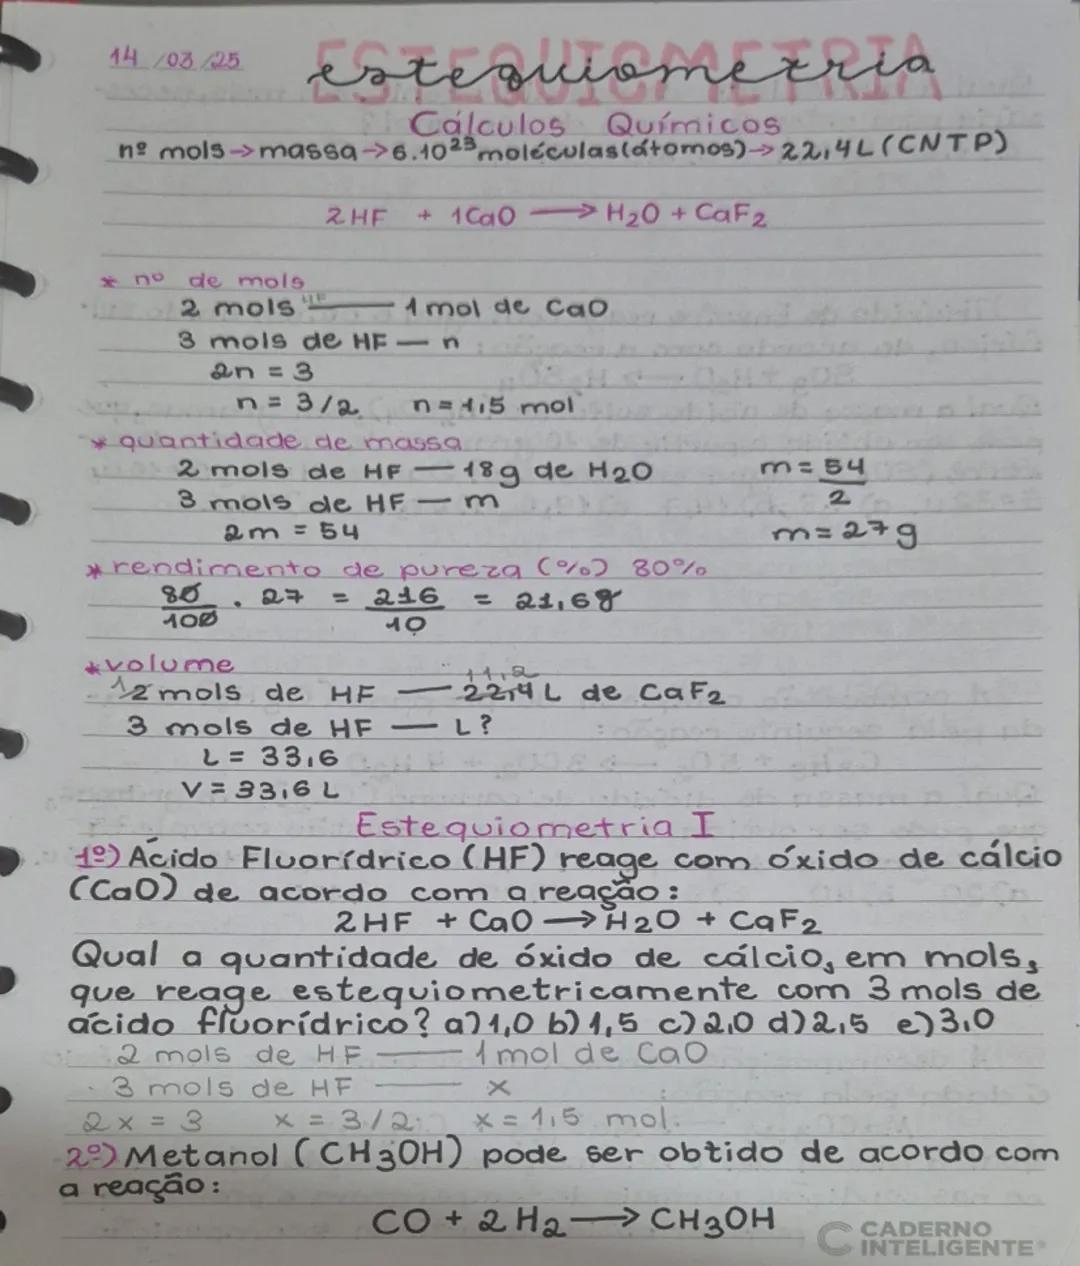 14/03/25
ESTEQUIOMETRIA
estequiometria
Cálculos Químicos
nº mols→massa→6.10²³moléculas(átomos)→22,4L(CNTP)
2HF + 1CaO → H₂O + CaF₂
* nº de mols
2 mols HF — 1 mol de CaO
3 mols de HF — n
2n = 3
n = 3/2 n = 1,5 mol
* quantidade de massa
2 mols de HF — 18g de H₂O m = 54/2
3 mols de HF — m
2m = 54 m = 27g
* rendimento de pureza (%) 80%
80/100 . 27 = 216/10 = 21,6g
*volume
12 mols de HF — 22,4L de CaF₂ 11,2
3 mols de HF — L?
L = 33,6
V = 33,6 L
Estequiometria I
1º) Ácido Fluorídrico (HF) reage com óxido de cálcio
(CaO) de acordo com a reação:
2HF + CaO → H₂O + CaF₂
Qual a quantidade de óxido de cálcio, em mols,
que reage estequiometricamente com 3 mols de
ácido fluorídrico? a) 1,0 b) 1,5 c) 2,0 d) 2,5 e) 3,0
2 mols de HF — 1 mol de CaO
3 mols de HF — x
2x = 3 x = 3/2 x = 1,5 mol.
2º) Metanol (CH3OH) pode ser obtido de acordo com
a reação:
CO + 2H₂ → CH3OH
CADERNO
INTELIGENTE®